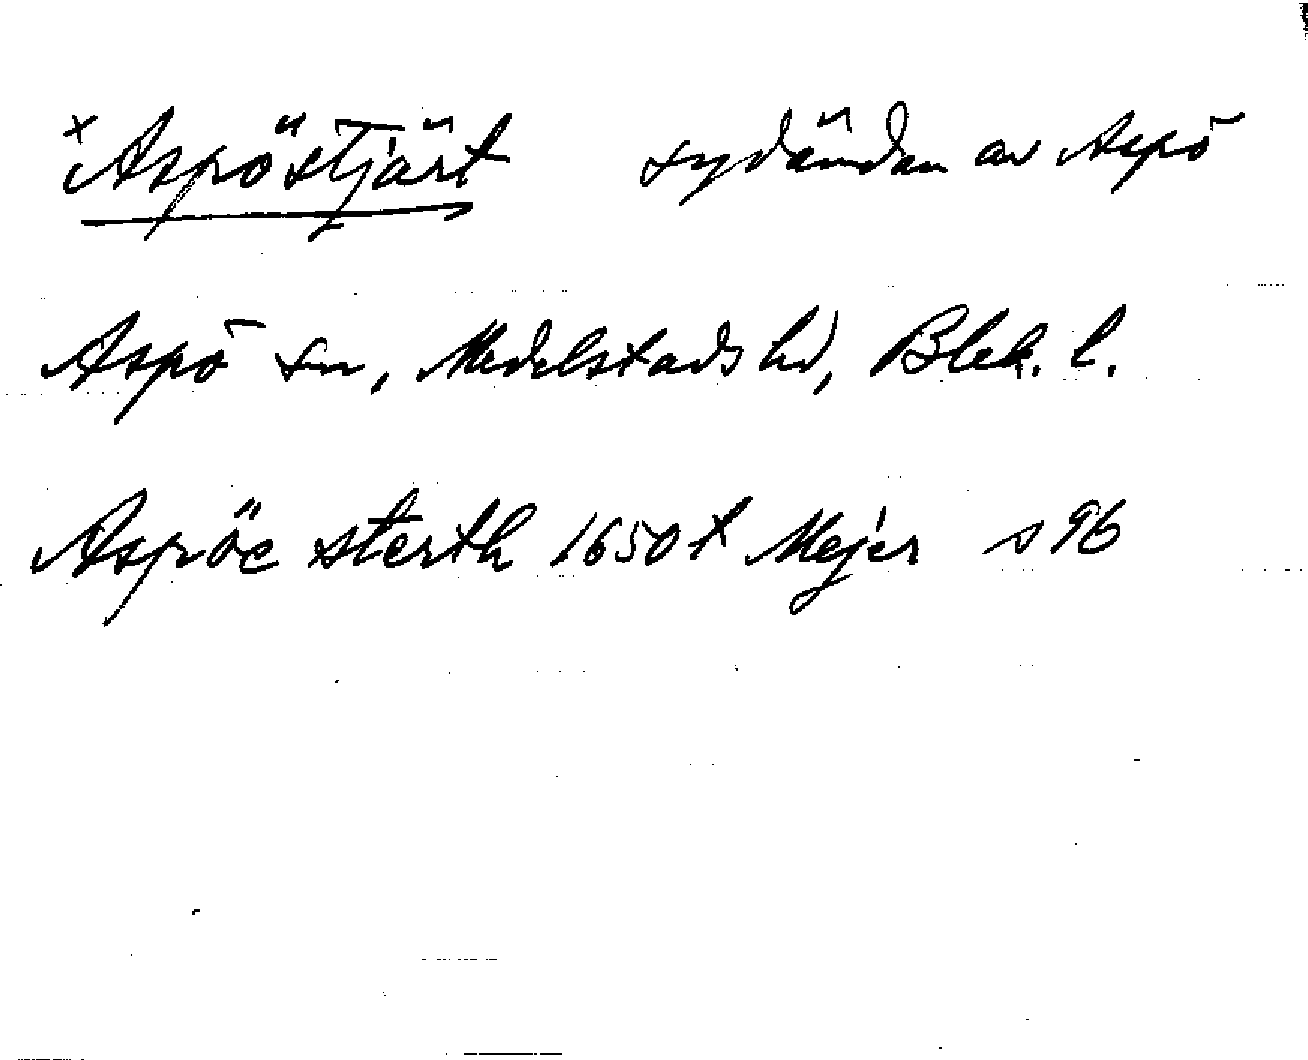 x Aspöstjärt sydändan av Aspö
Aspö sn, Medelstads hd, Blek. l.
Aspöe sterth 1650 t Mejer s 96